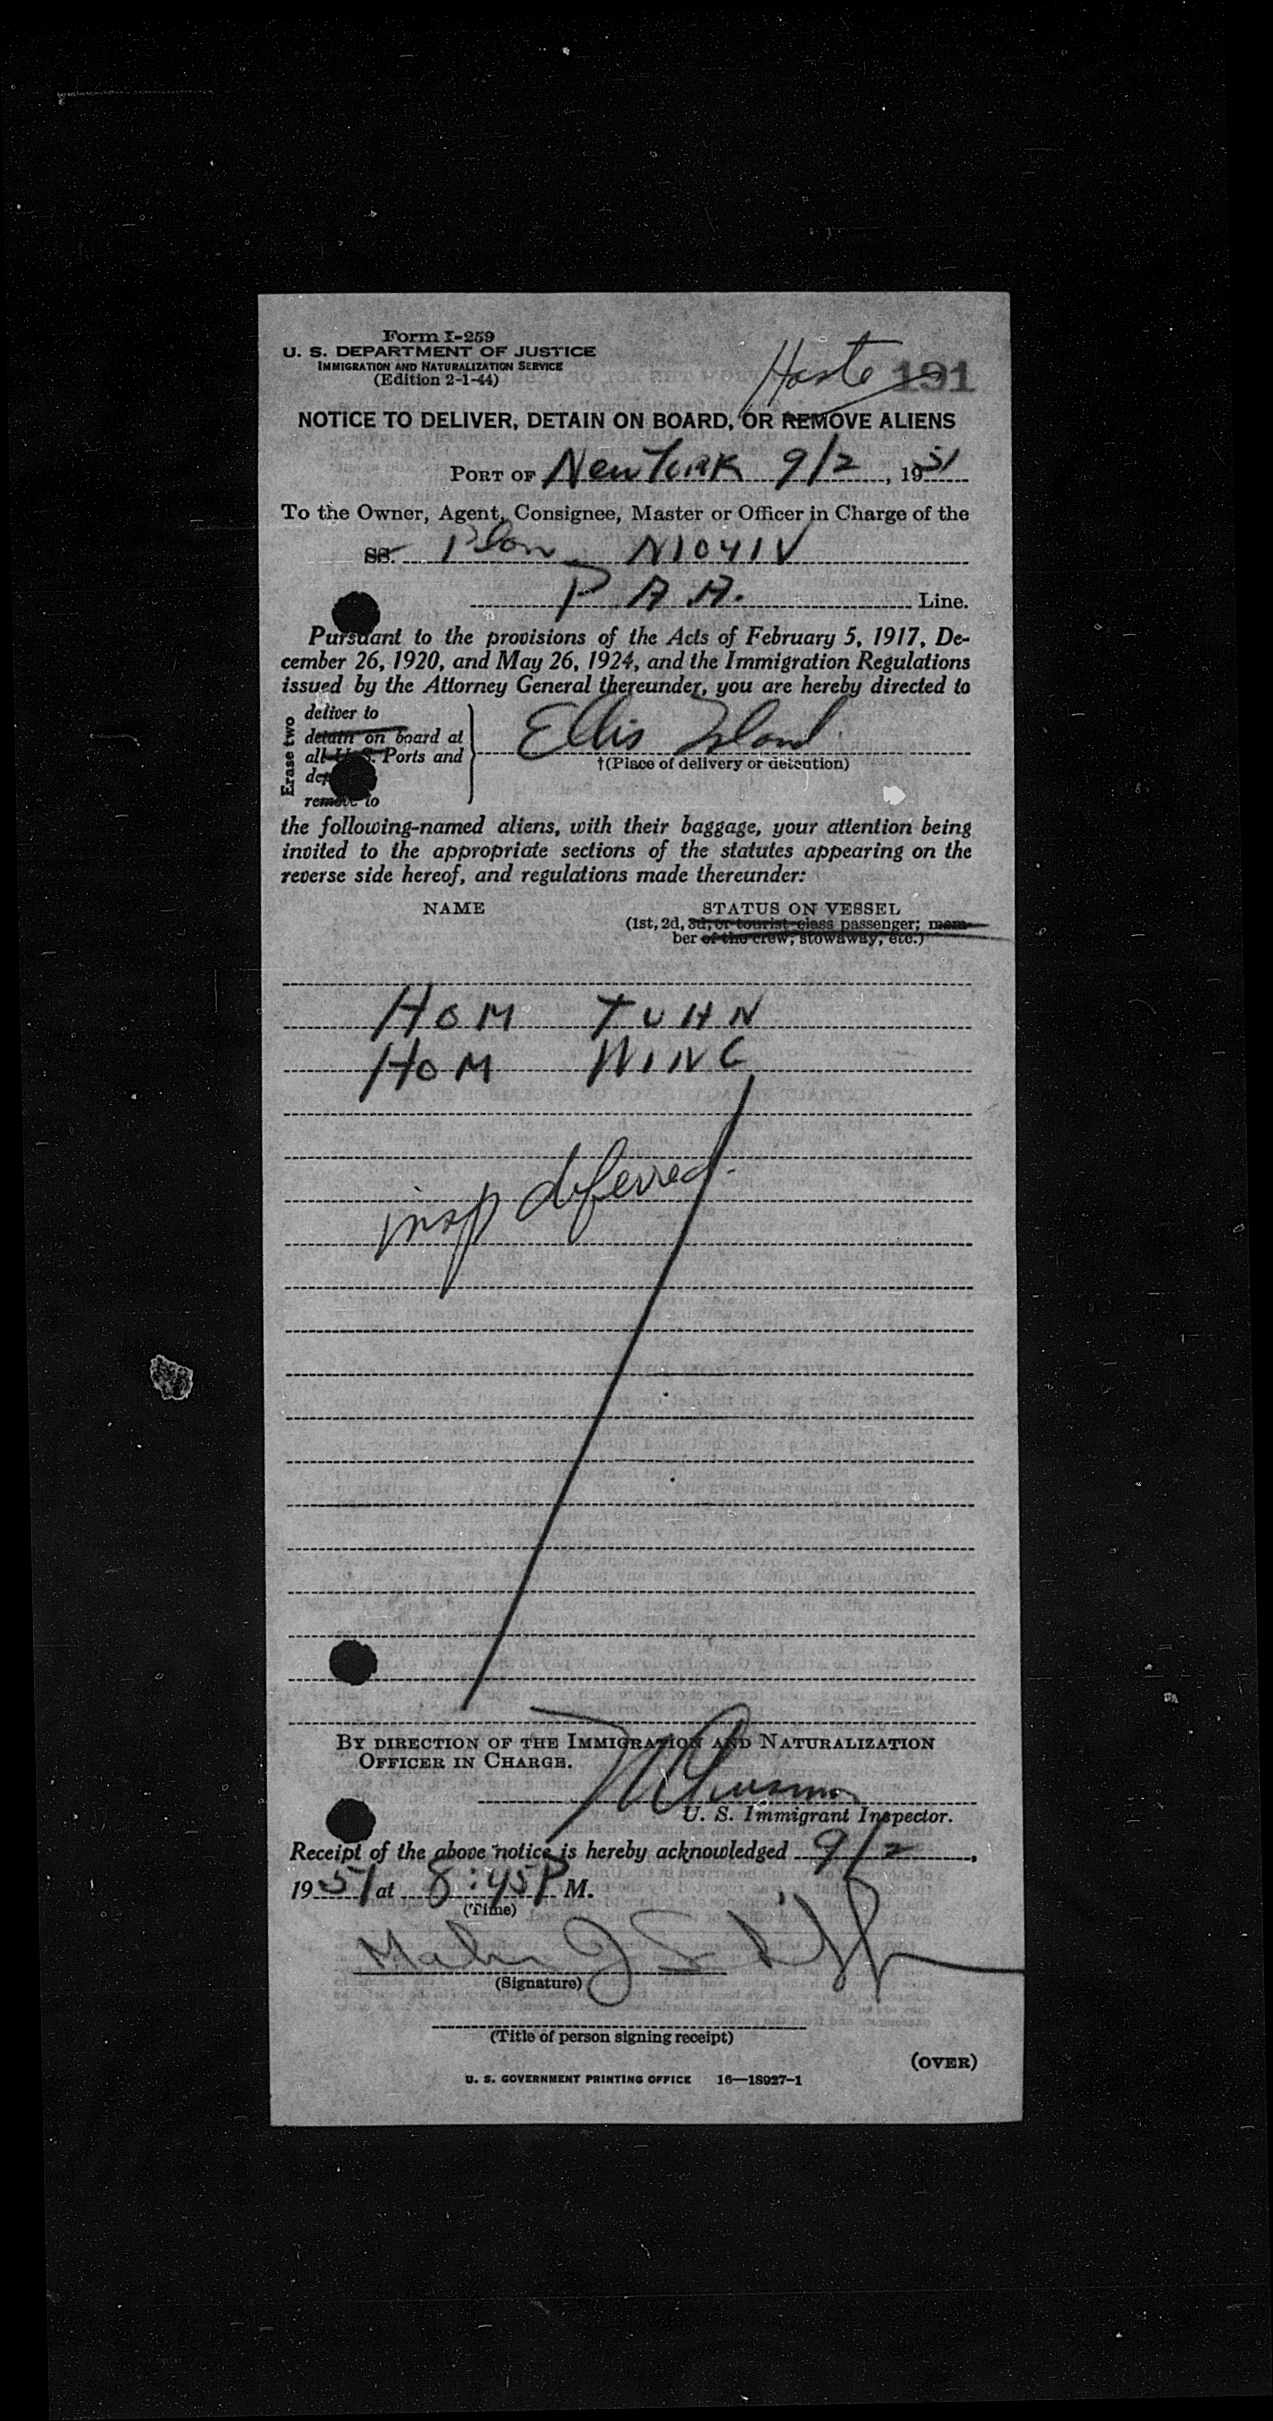 Form I-259
U. S. DEPARTMENT OF JUSTICE
IMMIGRATION AND NATURALIZATION SERVICE
(Edition 2-1-44)
191
NOTICE TO DELIVER, DETAIN ON BOARD, OR REMOVE ALIENS
PORT OF New York 9/2, 1951
To the Owner, Agent, Consignee, Master or Officer in Charge of the
SS. N1041V
P A A. Line.
Pursuant to the provisions of the Acts of February 5, 1917, De-
cember 26, 1920, and May 26, 1924, and the Immigration Regulations
issued by the Attorney General thereunder, you are hereby directed to
Erase two
deliver to
detain on board at
all U. S. Ports and
remove to
Ellis Island
†(Place of delivery or detention)
the following-named aliens, with their baggage, your attention being
invited to the appropriate sections of the statutes appearing on the
reverse side hereof, and regulations made thereunder:
NAME STATUS ON VESSEL
(1st, 2d, 3d, or tourist class passenger; mem-
ber of the crew, stowaway, etc.)
HOM TUHN
HOM WING
insp deferred.
BY DIRECTION OF THE IMMIGRATION AND NATURALIZATION
OFFICER IN CHARGE.
U. S. Immigrant Inspector.
Receipt of the above notice is hereby acknowledged 9/2,
1951 at 8:45 P M.
(Time)
(Signature)
(Title of person signing receipt)
(OVER)
U. S. GOVERNMENT PRINTING OFFICE 16—18927-1